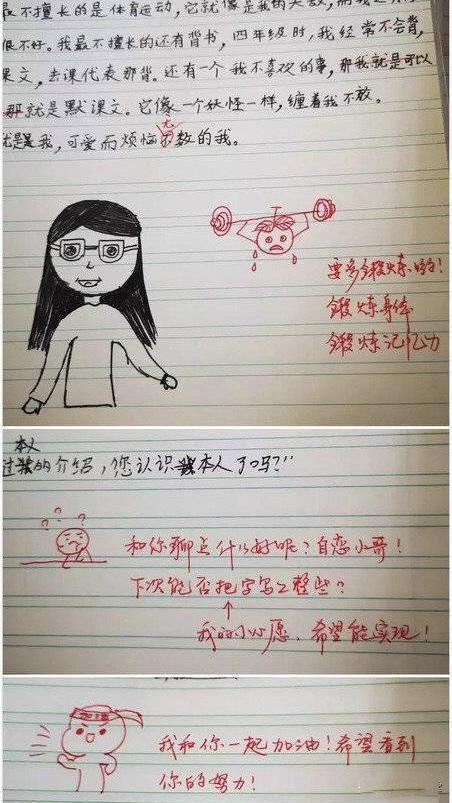 最不擅长的是体育运动，它就像是我的天敌，而我
很不好。我最不擅长的还有背书，四年级时，我经常不会背
课文，去课代表那背。还有一个我不喜欢的事，那我就是可以
那就是默课文。它像一个妖怪一样，缠着我不放。
就是我，可爱而烦恼无数的我。
要多锻炼哟！
锻炼身体
锻炼记忆力
本人
过我的介绍，您认识我本人了吗？"
? ? ?
和你聊点什么好呢？自恋小哥！
下次能否把字写工整些？
我的小心愿，希望能实现！
加油
我和你一起加油！希望看到
你的努力！